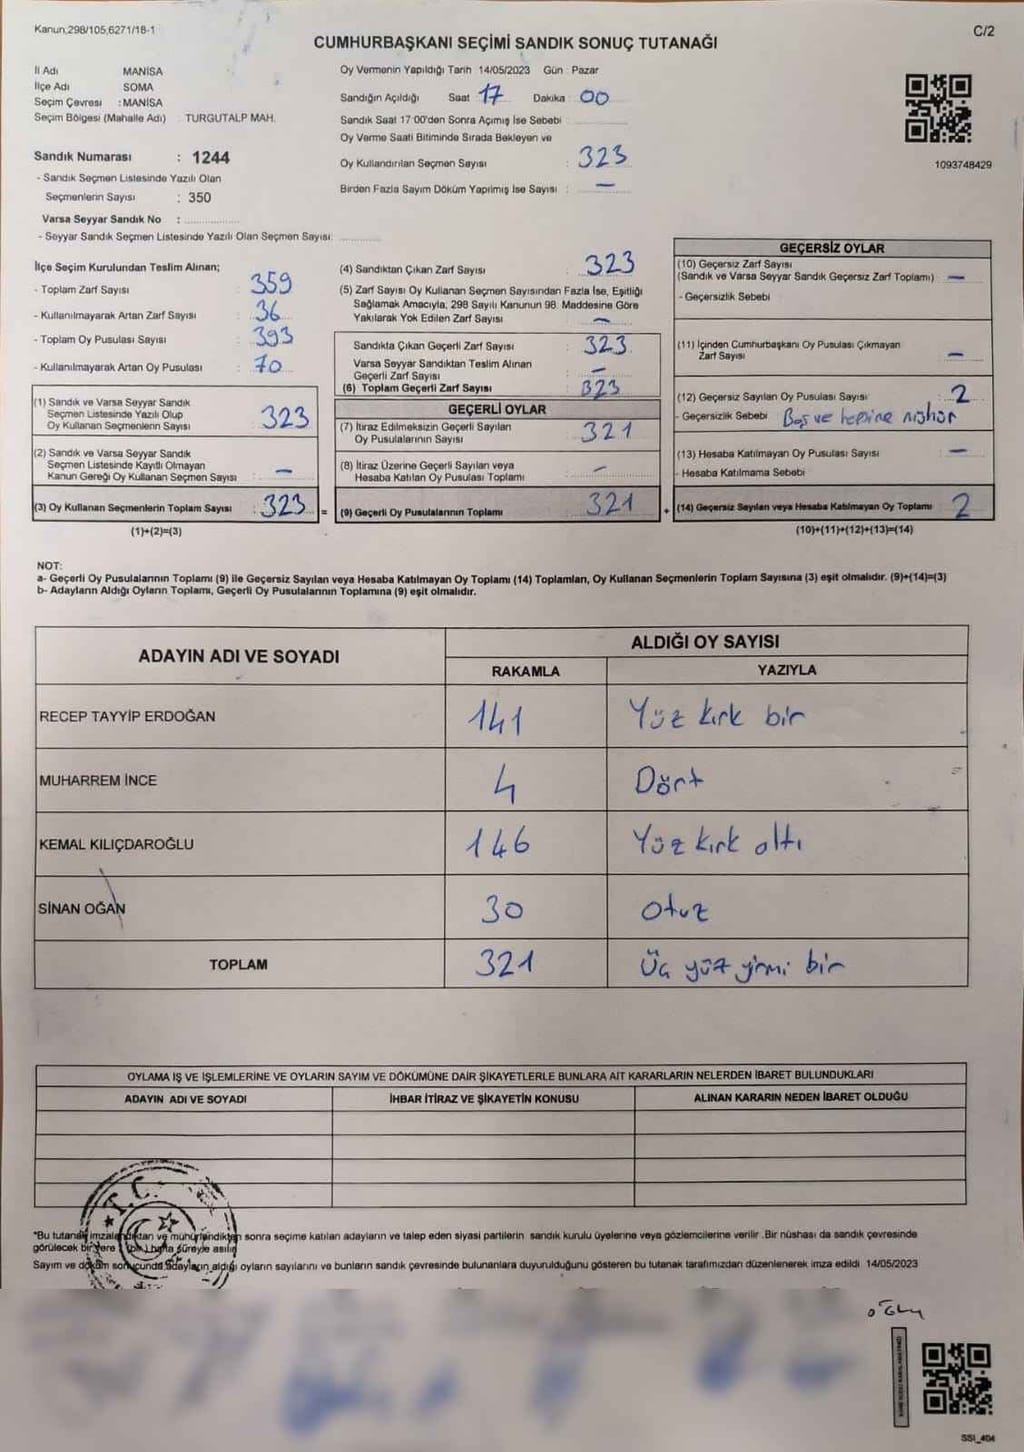 Kanun,298/105,6271/18-1
C/2
CUMHURBAŞKANI SEÇİMİ SANDIK SONUÇ TUTANAĞI
İl Adı MANİSA
İlçe Adı SOMA
Seçim Çevresi : MANİSA
Seçim Bölgesi (Mahalle Adı) TURGUTALP MAH.
Sandık Numarası : 1244
- Sandık Seçmen Listesinde Yazılı Olan
Seçmenlerin Sayısı : 350
Varsa Seyyar Sandık No :
- Seyyar Sandık Seçmen Listesinde Yazılı Olan Seçmen Sayısı:
Oy Vermenin Yapıldığı Tarih 14/05/2023 Gün : Pazar
Sandığın Açıldığı Saat 17 Dakika : 00
Sandık Saat 17:00'den Sonra Açımış İse Sebebi :
Oy Verme Saati Bitiminde Sırada Bekleyen ve
Oy Kullandırılan Seçmen Sayısı : 323
Birden Fazla Sayım Döküm Yapılmış İse Sayısı : —
1093748429
İlçe Seçim Kurulundan Teslim Alınan;
- Toplam Zarf Sayısı : 359
- Kullanılmayarak Artan Zarf Sayısı : 36
- Toplam Oy Pusulası Sayısı : 393
- Kullanılmayarak Artan Oy Pusulası : 70
(1) Sandık ve Varsa Seyyar Sandık
Seçmen Listesinde Yazılı Olup
Oy Kullanan Seçmenlerin Sayısı : 323
(2) Sandık ve Varsa Seyyar Sandık
Seçmen Listesinde Kayıtlı Olmayan
Kanun Gereği Oy Kullanan Seçmen Sayısı : —
(3) Oy Kullanan Seçmenlerin Toplam Sayısı : 323 =
(1)+(2)=(3)
(4) Sandıktan Çıkan Zarf Sayısı : 323
(5) Zarf Sayısı Oy Kullanan Seçmen Sayısından Fazla İse, Eşitliği
Sağlamak Amacıyla, 298 Sayılı Kanunun 98. Maddesine Göre
Yakılarak Yok Edilen Zarf Sayısı : —
Sandıkta Çıkan Geçerli Zarf Sayısı : 323
Varsa Seyyar Sandıktan Teslim Alınan
Geçerli Zarf Sayısı : —
(6) Toplam Geçerli Zarf Sayısı : 323
GEÇERLİ OYLAR
(7) İtiraz Edilmeksizin Geçerli Sayılan
Oy Pusulalarının Sayısı : 321
(8) İtiraz Üzerine Geçerli Sayılan veya
Hesaba Katılan Oy Pusulası Toplamı : —
(9) Geçerli Oy Pusulalarının Toplamı : 321 +
GEÇERSİZ OYLAR
(10) Geçersiz Zarf Sayısı
(Sandık ve Varsa Seyyar Sandık Geçersiz Zarf Toplamı) : —
- Geçersizlik Sebebi
(11) İçinden Cumhurbaşkanı Oy Pusulası Çıkmayan
Zarf Sayısı : —
(12) Geçersiz Sayılan Oy Pusulası Sayısı : 2
- Geçersizlik Sebebi Boş ve hepsine mühür
(13) Hesaba Katılmayan Oy Pusulası Sayısı : —
- Hesaba Katılmama Sebebi
(14) Geçersiz Sayılan veya Hesaba Katılmayan Oy Toplamı : 2
(10)+(11)+(12)+(13)=(14)
NOT:
a- Geçerli Oy Pusulalarının Toplamı (9) ile Geçersiz Sayılan veya Hesaba Katılmayan Oy Toplamı (14) Toplamları, Oy Kullanan Seçmenlerin Toplam Sayısına (3) eşit olmalıdır. (9)+(14)=(3)
b- Adayların Aldığı Oyların Toplamı, Geçerli Oy Pusulalarının Toplamına (9) eşit olmalıdır.
ADAYIN ADI VE SOYADI
ALDIĞI OY SAYISI
RAKAMLA YAZIYLA
RECEP TAYYİP ERDOĞAN 141 Yüz kırk bir
MUHARREM İNCE 4 Dört
KEMAL KILIÇDAROĞLU 146 Yüz kırk altı
SİNAN OĞAN 30 Otuz
TOPLAM 321 Üç yüz yirmi bir
OYLAMA İŞ VE İŞLEMLERİNE VE OYLARIN SAYIM VE DÖKÜMÜNE DAİR ŞİKAYETLERLE BUNLARA AİT KARARLARIN NELERDEN İBARET BULUNDUKLARI
ADAYIN ADI VE SOYADI İHBAR İTİRAZ VE ŞİKAYETİN KONUSU ALINAN KARARIN NEDEN İBARET OLDUĞU
T.C.
*Bu tutanak imzalandıktan ve mühürlendikten sonra seçime katılan adayların ve talep eden siyasi partilerin sandık kurulu üyelerine veya gözlemcilerine verilir .Bir nüshası da sandık çevresinde
görülecek bir yere 1 (bir) hafta süreyle asılır
Sayım ve döküm sonucunda adayların aldığı oyların sayılarını ve bunların sandık çevresinde bulunanlara duyurulduğunu gösteren bu tutanak tarafımızdan düzenlenerek imza edildi 14/05/2023
SSİ_404